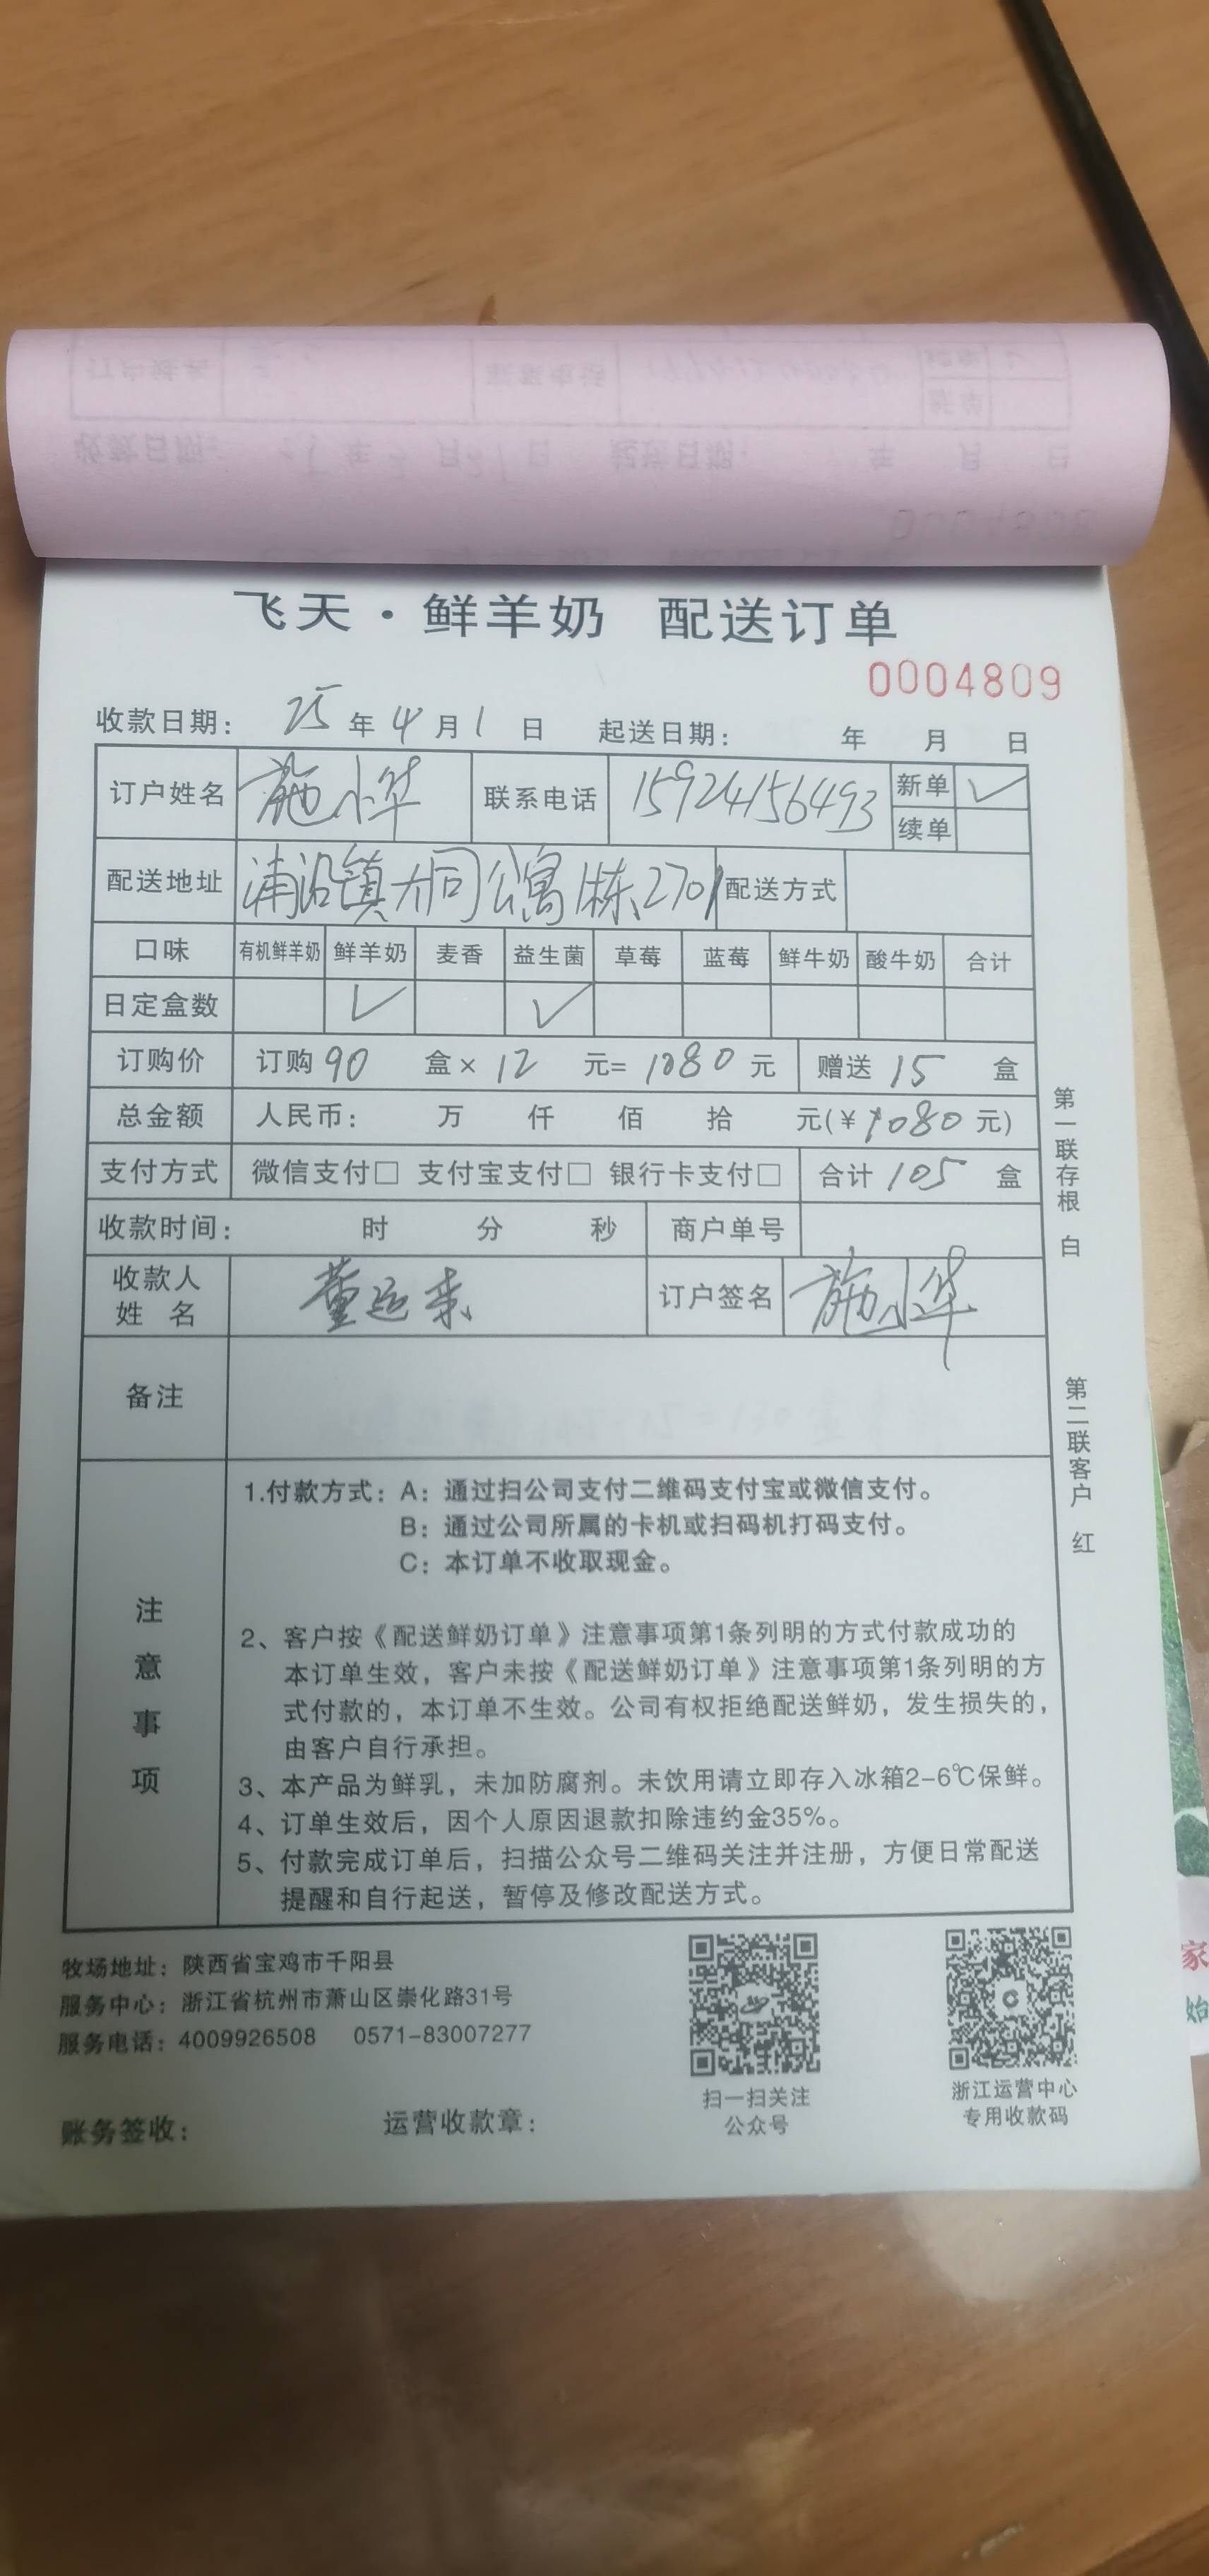 飞天·鲜羊奶 配送订单
0004809
收款日期: 25 年 4 月 1 日 起送日期: 年 月 日
订户姓名 施小华 联系电话 15924156493 新单 ✓
续单
配送地址 浦沿镇 公寓1栋2701 配送方式
口味 有机鲜羊奶 鲜羊奶 麦香 益生菌 草莓 蓝莓 鲜牛奶 酸牛奶 合计
日定盒数 ✓ ✓
订购价 订购 90 盒× 12 元= 1080 元 赠送 15 盒
总金额 人民币: 万 仟 佰 拾 元(¥1080元)
支付方式 微信支付□ 支付宝支付□ 银行卡支付□ 合计 105 盒
收款时间: 时 分 秒 商户单号
收款人姓名 董运来 订户签名 施小华
备注
注意事项
1.付款方式: A: 通过扫公司支付二维码支付宝或微信支付。
B: 通过公司所属的卡机或扫码机打码支付。
C: 本订单不收取现金。
2、客户按《配送鲜奶订单》注意事项第1条列明的方式付款成功的
本订单生效，客户未按《配送鲜奶订单》注意事项第1条列明的方
式付款的，本订单不生效。公司有权拒绝配送鲜奶，发生损失的，
由客户自行承担。
3、本产品为鲜乳，未加防腐剂。未饮用请立即存入冰箱2-6℃保鲜。
4、订单生效后，因个人原因退款扣除违约金35%。
5、付款完成订单后，扫描公众号二维码关注并注册，方便日常配送
提醒和自行起送，暂停及修改配送方式。
第一联存根 白
第二联客户 红
牧场地址: 陕西省宝鸡市千阳县
服务中心: 浙江省杭州市萧山区崇化路31号
服务电话: 4009926508 0571-83007277
扫一扫关注
公众号
浙江运营中心
专用收款码
账务签收: 运营收款章:
家
始